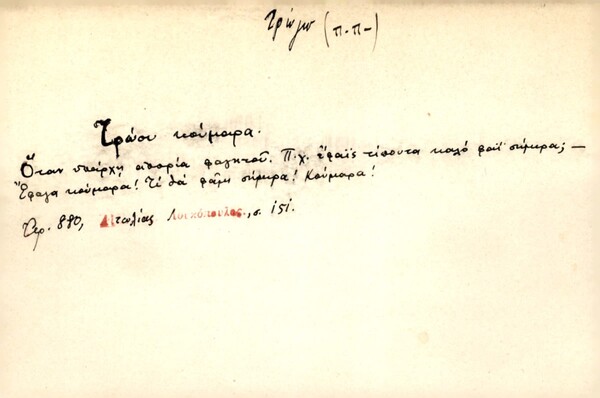 Τρώγω (π.π-)
Τρώου κούμαρα.
Ὅταν ὑπάρχῃ ἀπορία φαγητοῦ. Π.χ. Ἔφαϊς τίποντα καλό φαΐ σήμιρα; —
Ἔφαγα κούμαρα! Τί θά φᾶμι σήμιρα! Κούμαρα!
Χερ. 880, Αἰτωλίας Λουκόπουλος, σ. 151.